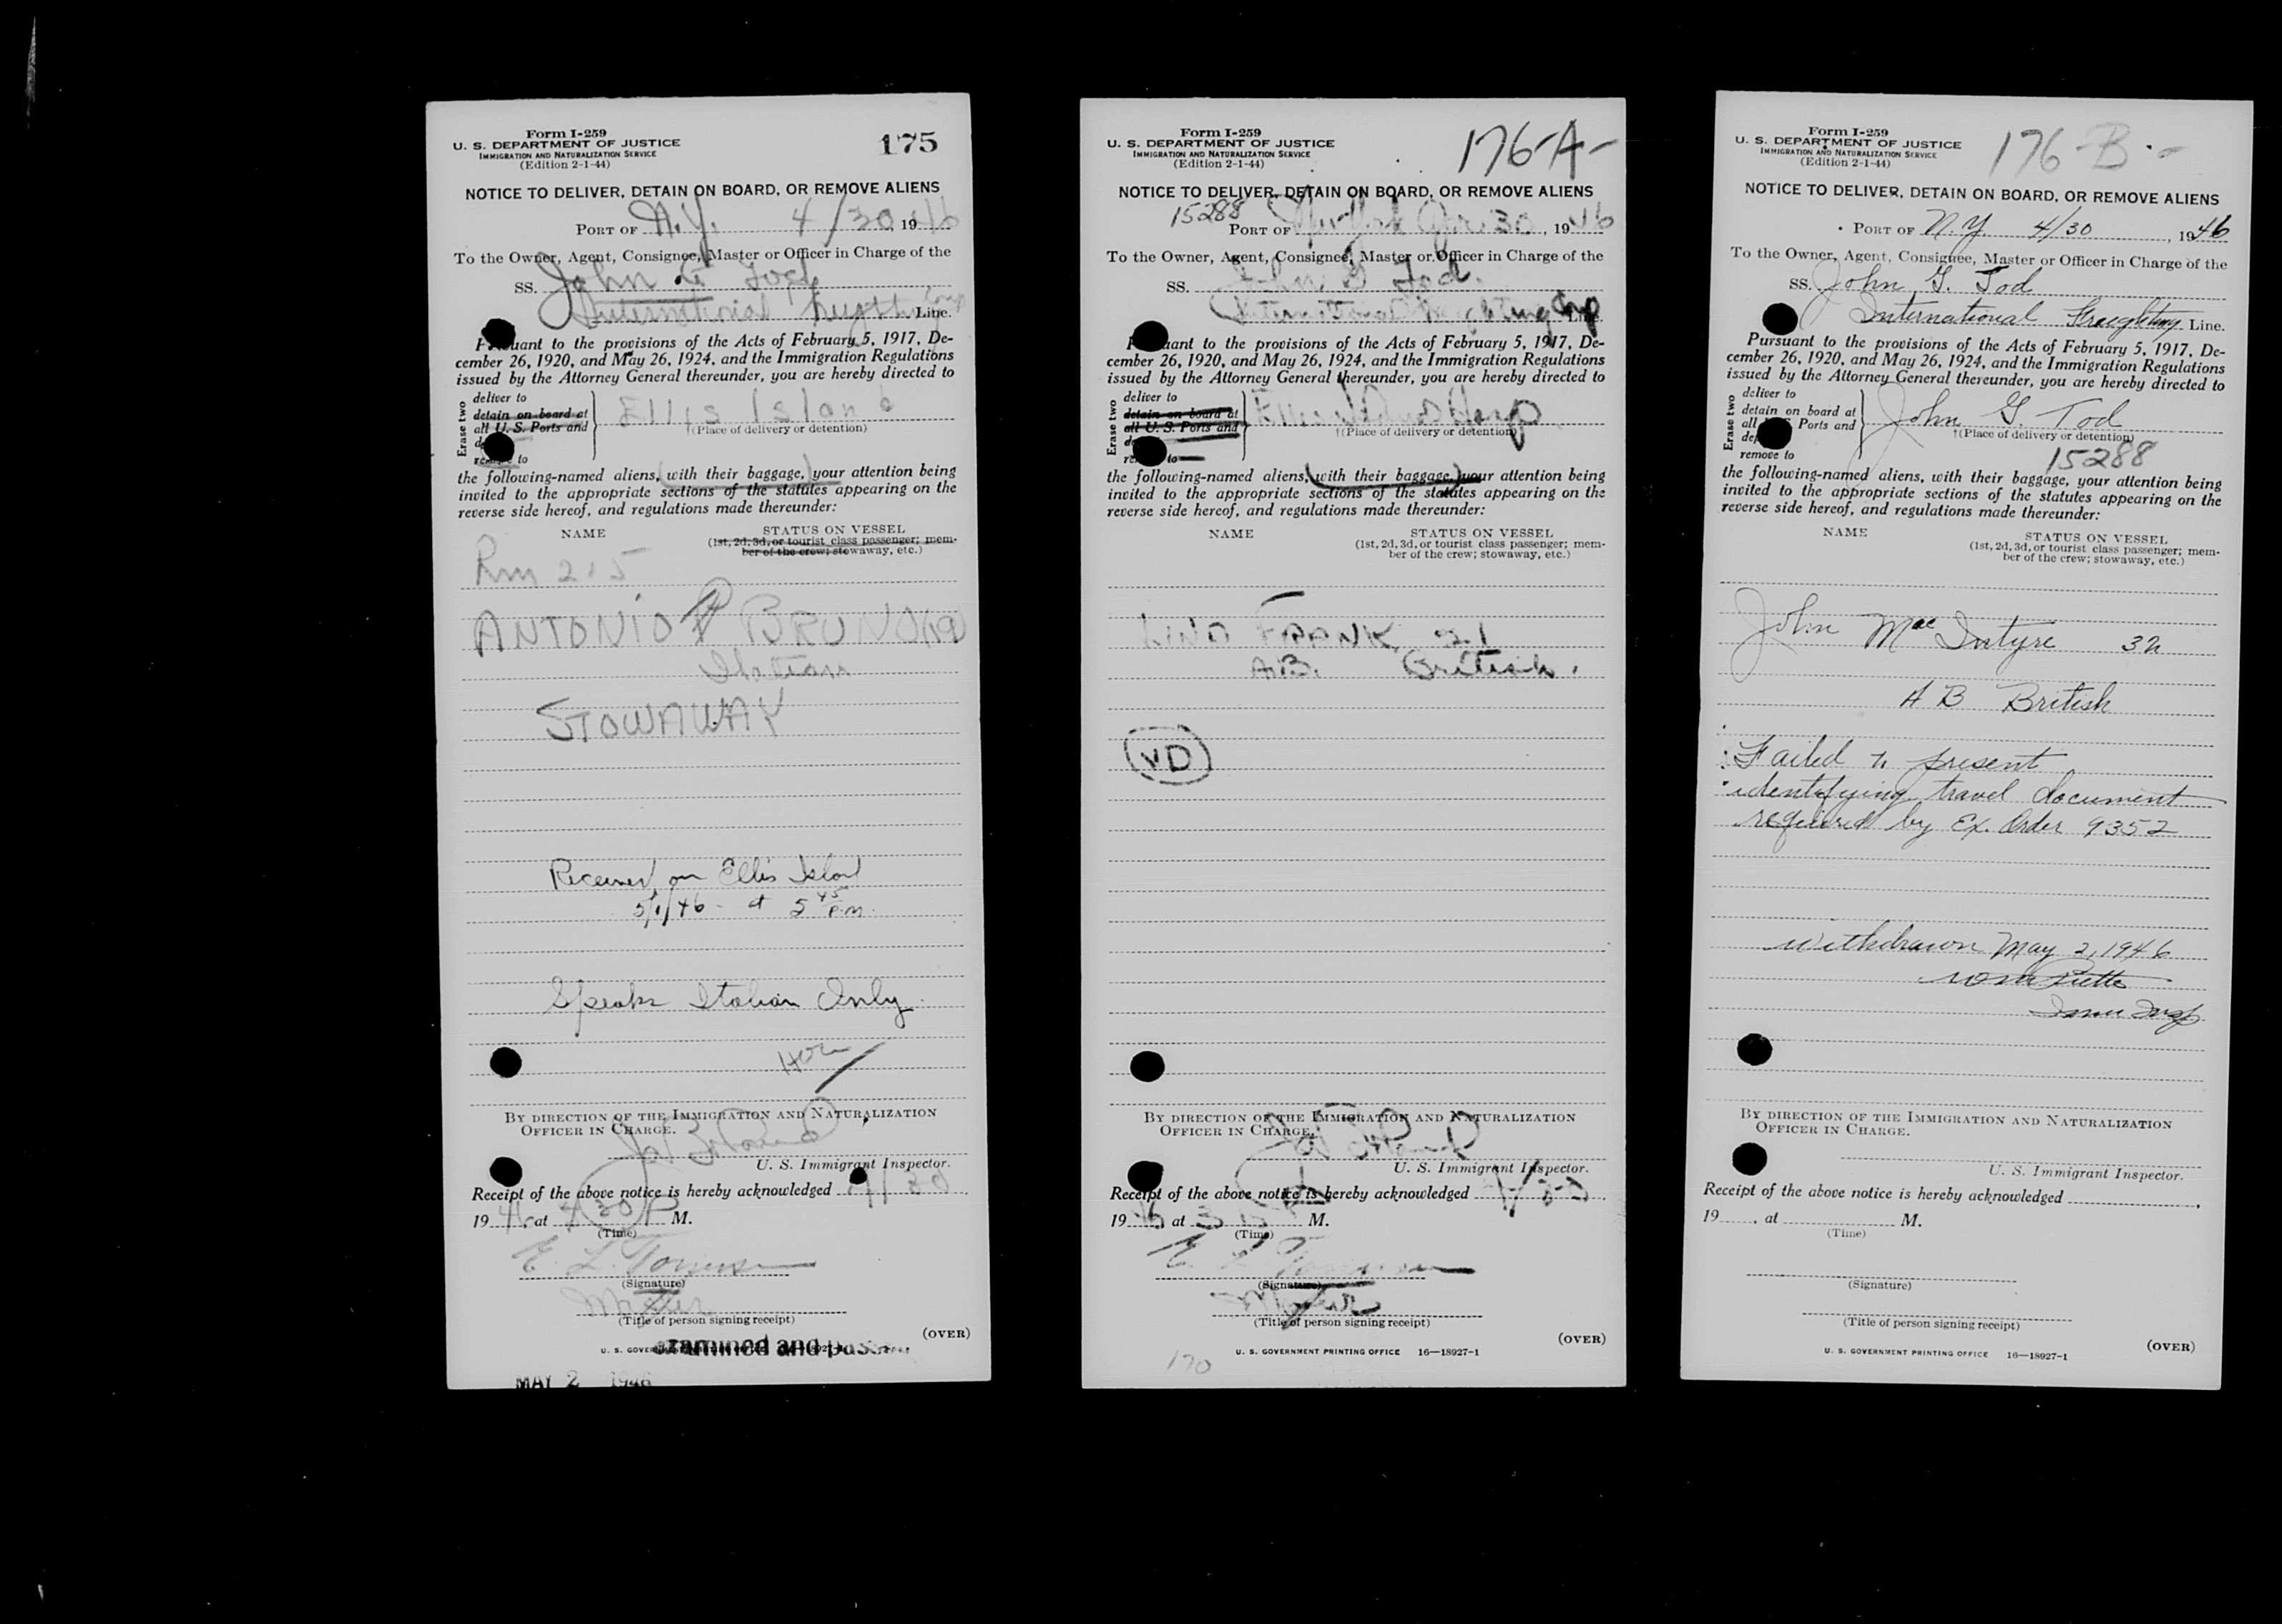 Form I-259
U. S. DEPARTMENT OF JUSTICE
IMMIGRATION AND NATURALIZATION SERVICE
(Edition 2-1-44)
175
NOTICE TO DELIVER, DETAIN ON BOARD, OR REMOVE ALIENS
PORT OF N.Y. 4/30, 1946
To the Owner, Agent, Consignee, Master or Officer in Charge of the
SS. John G Tod
International Line.
Pursuant to the provisions of the Acts of February 5, 1917, De-
cember 26, 1920, and May 26, 1924, and the Immigration Regulations
issued by the Attorney General thereunder, you are hereby directed to
Erase two
deliver to
detain on board at
all U. S. Ports and
remove to
Ellis Island
†(Place of delivery or detention)
the following-named aliens, with their baggage, your attention being
invited to the appropriate sections of the statutes appearing on the
reverse side hereof, and regulations made thereunder:
NAME
STATUS ON VESSEL
(1st, 2d, 3d, or tourist class passenger; mem-
ber of the crew; stowaway, etc.)
Rm 215
ANTONIO BRUNO
Italian
STOWAWAY
Received on Ellis Island
5/1/46 - at 5 45 P.M.
Speaks Italian Only
BY DIRECTION OF THE IMMIGRATION AND NATURALIZATION
OFFICER IN CHARGE.
U. S. Immigrant Inspector.
Receipt of the above notice is hereby acknowledged 4/30,
1946, at 4 30 P M.
(Time)
E. L.
(Signature)
Master
(Title of person signing receipt)
(OVER)
Examined and passed
MAY 2 1946
Form I-259
U. S. DEPARTMENT OF JUSTICE
IMMIGRATION AND NATURALIZATION SERVICE
(Edition 2-1-44)
176-A-
NOTICE TO DELIVER, DETAIN ON BOARD, OR REMOVE ALIENS
15288
PORT OF New York Apr. 30, 1946
To the Owner, Agent, Consignee, Master or Officer in Charge of the
SS. John G Tod.
International Line.
Pursuant to the provisions of the Acts of February 5, 1917, De-
cember 26, 1920, and May 26, 1924, and the Immigration Regulations
issued by the Attorney General thereunder, you are hereby directed to
Erase two
deliver to
detain on board at
all U. S. Ports and
Ellis Island Hosp
†(Place of delivery or detention)
the following-named aliens, with their baggage, your attention being
invited to the appropriate sections of the statutes appearing on the
reverse side hereof, and regulations made thereunder:
NAME
STATUS ON VESSEL
(1st, 2d, 3d, or tourist class passenger; mem-
ber of the crew; stowaway, etc.)
FRANK, 21
A.B. British.
VD
BY DIRECTION OF THE IMMIGRATION AND NATURALIZATION
OFFICER IN CHARGE.
U. S. Immigrant Inspector.
Receipt of the above notice is hereby acknowledged
1946, at 3 15 P M.
(Time)
E L
(Signature)
Master
(Title of person signing receipt)
(OVER)
170
U. S. GOVERNMENT PRINTING OFFICE 16—18927-1
Form I-259
U. S. DEPARTMENT OF JUSTICE
IMMIGRATION AND NATURALIZATION SERVICE
(Edition 2-1-44)
176-B-
NOTICE TO DELIVER, DETAIN ON BOARD, OR REMOVE ALIENS
PORT OF N.Y. 4/30, 1946
To the Owner, Agent, Consignee, Master or Officer in Charge of the
SS. John G. Tod
International Freighting Line.
Pursuant to the provisions of the Acts of February 5, 1917, De-
cember 26, 1920, and May 26, 1924, and the Immigration Regulations
issued by the Attorney General thereunder, you are hereby directed to
Erase two
deliver to
detain on board at
all Ports and
remove to
John G. Tod
†(Place of delivery or detention)
15288
the following-named aliens, with their baggage, your attention being
invited to the appropriate sections of the statutes appearing on the
reverse side hereof, and regulations made thereunder:
NAME
STATUS ON VESSEL
(1st, 2d, 3d, or tourist class passenger; mem-
ber of the crew; stowaway, etc.)
John MacIntyre 32
A B British
Failed to present
identifying travel document
required by Ex. Order 9352
Withdrawn May 2, 1946
Immi Insp
BY DIRECTION OF THE IMMIGRATION AND NATURALIZATION
OFFICER IN CHARGE.
U. S. Immigrant Inspector.
Receipt of the above notice is hereby acknowledged ,
19 , at M.
(Time)
(Signature)
(Title of person signing receipt)
(OVER)
U. S. GOVERNMENT PRINTING OFFICE 16—18927-1